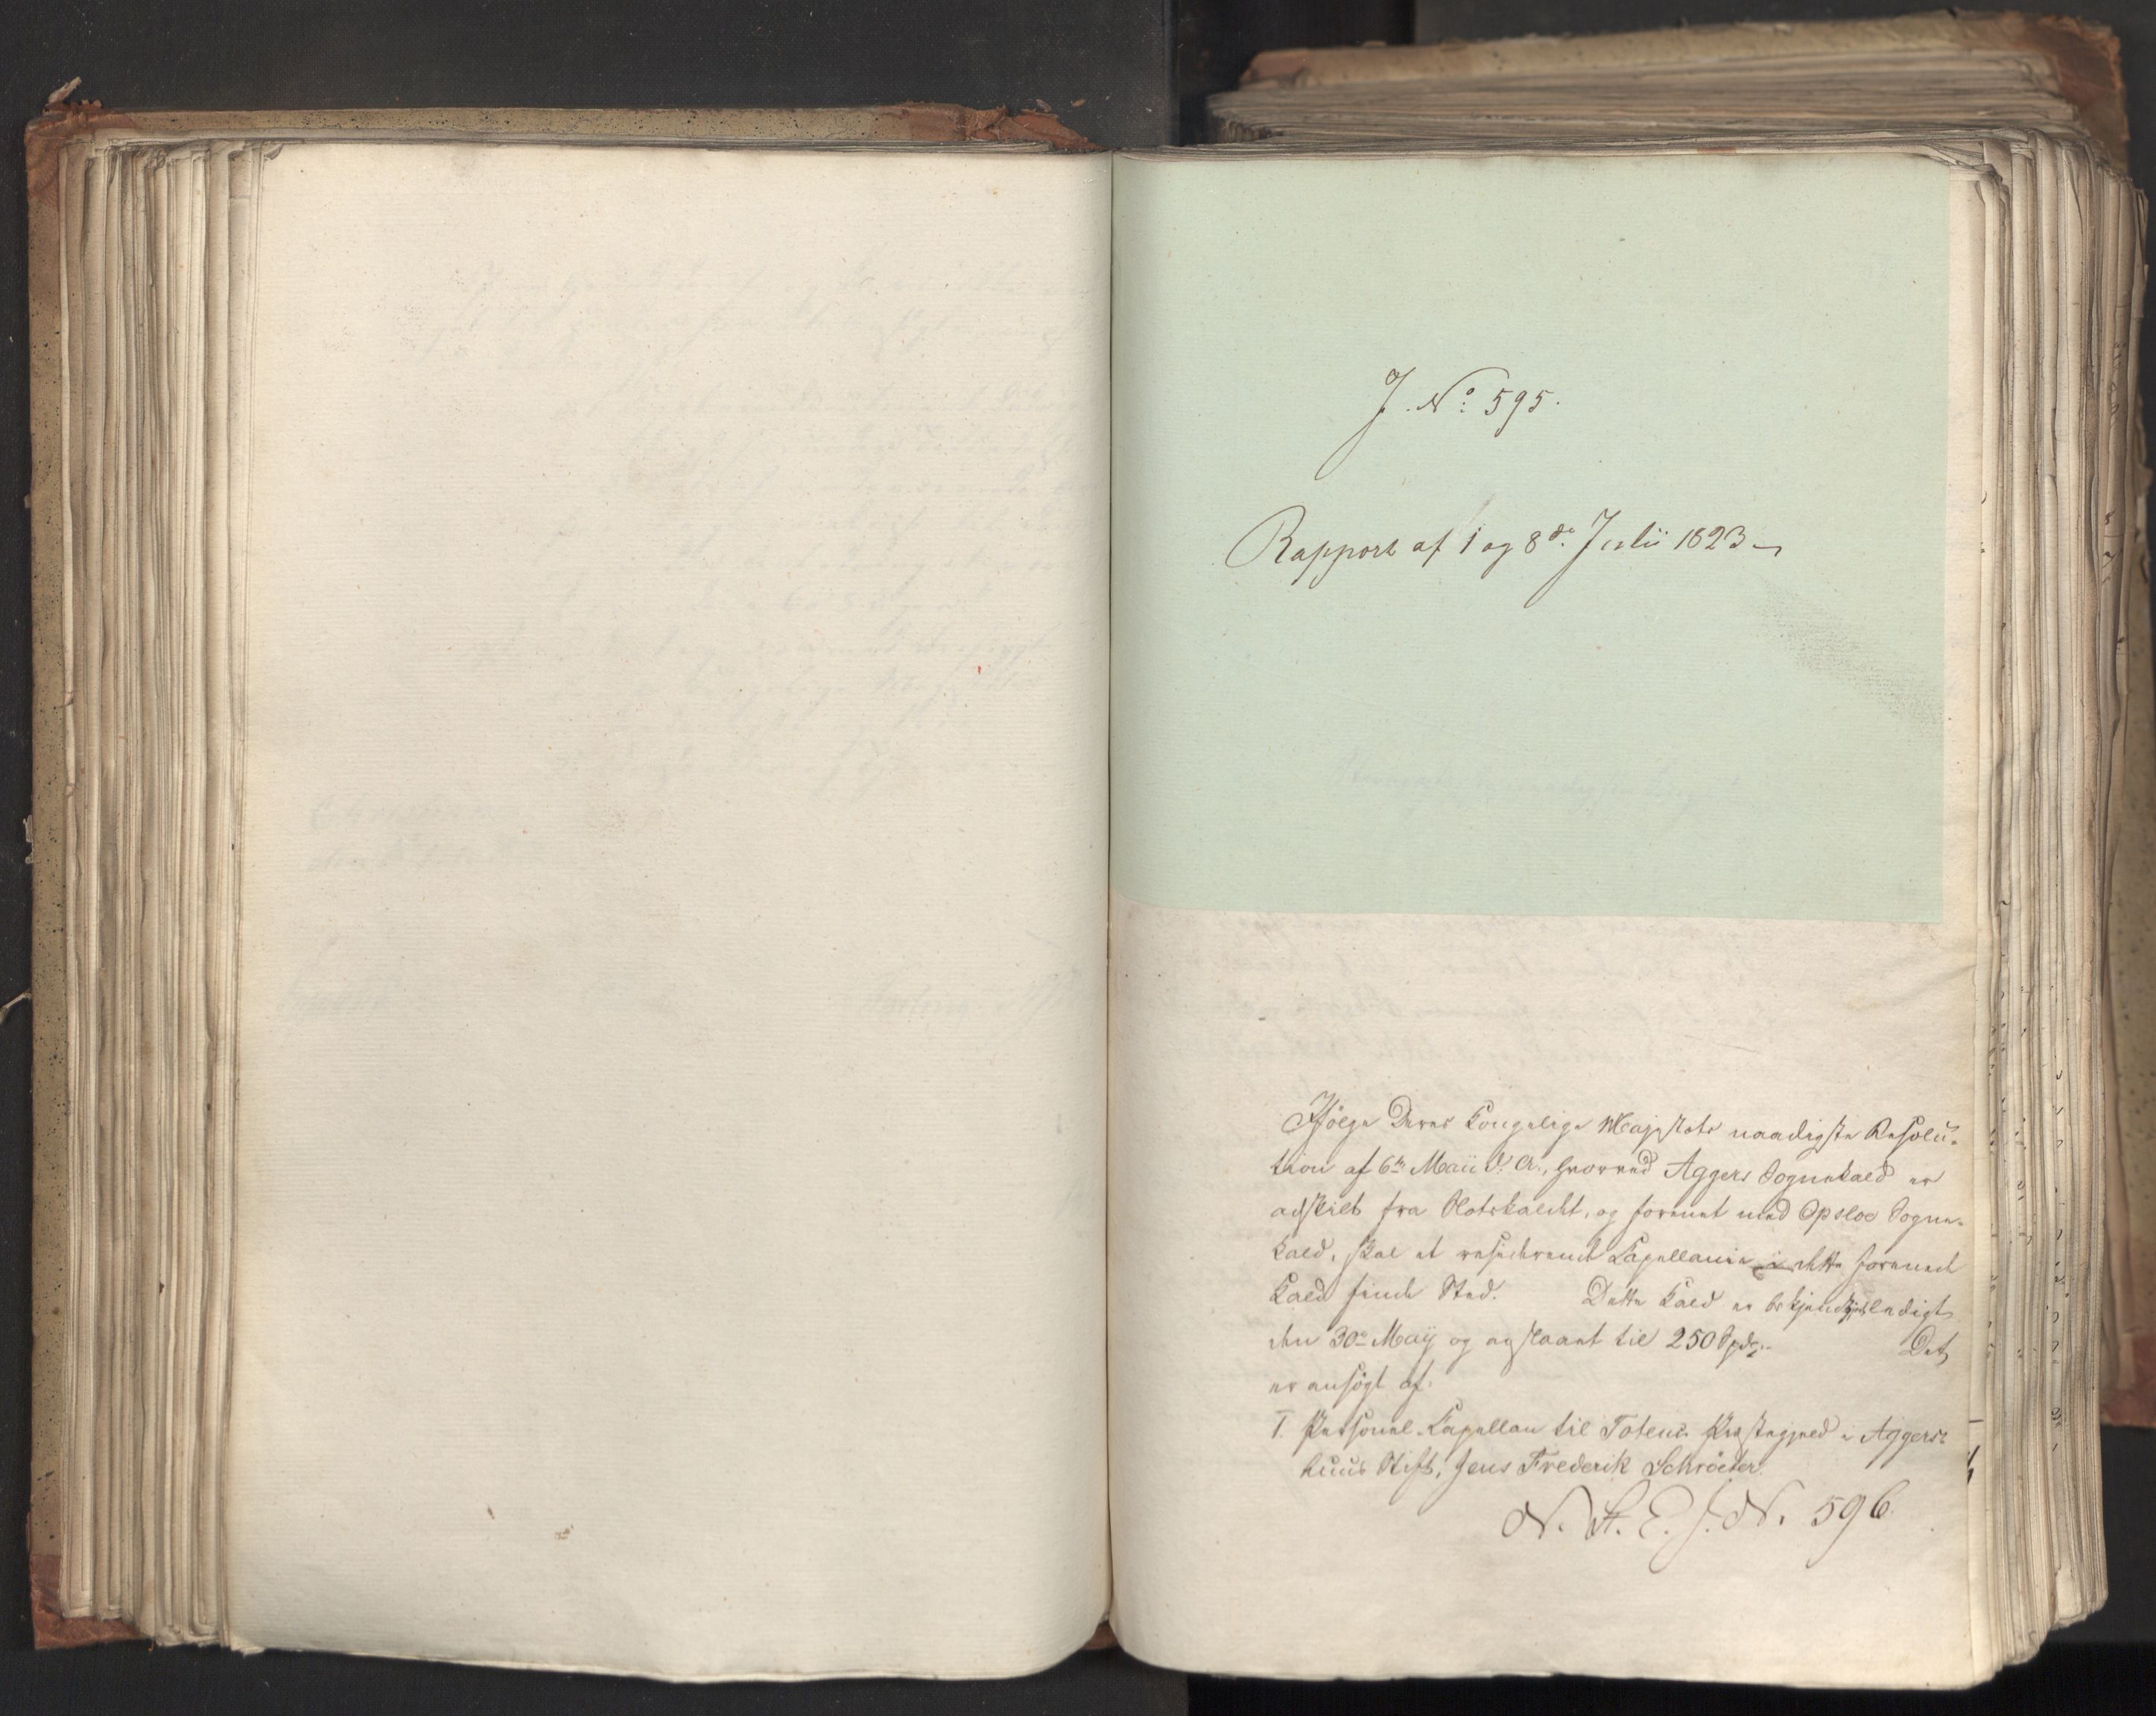 J. No: 595.
Rapport af 1 og 8de Julii 1823
Ifölge Deres Kongelige Majestæts naadigste Resolu-
tion af 6te Maii d: A., hvorved Aggers Sognekald er
adskilt fra Slotskaldet, og forenet med Opsloe Sogne-
kald, skal et residerende Capellanie i dette forenede
Kald finde Sted. Dette Kald er bekjendtgjort ledigt
den 30e Maij og anslaaet til 250 Spdr. Det
er ansögt af:
1. Personel-Capellan til Totens Præstegjeld i Aggers-
huus Stift, Jens Frederik Schröeter.
N. St. E. J. N. 596.